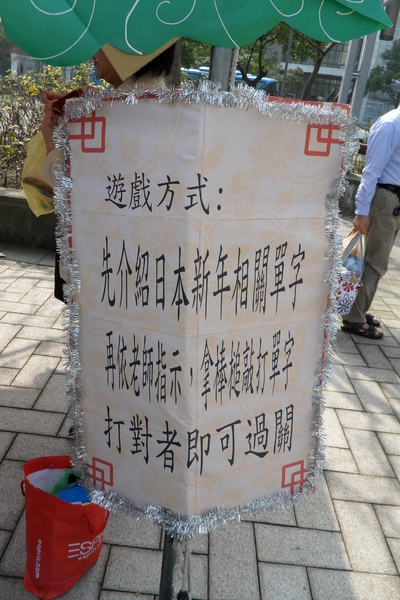 遊戲方式:
先介紹日本新年相關單字
再依老師指示，拿棒槌敲打單字
打對者即可過關
esprit.com